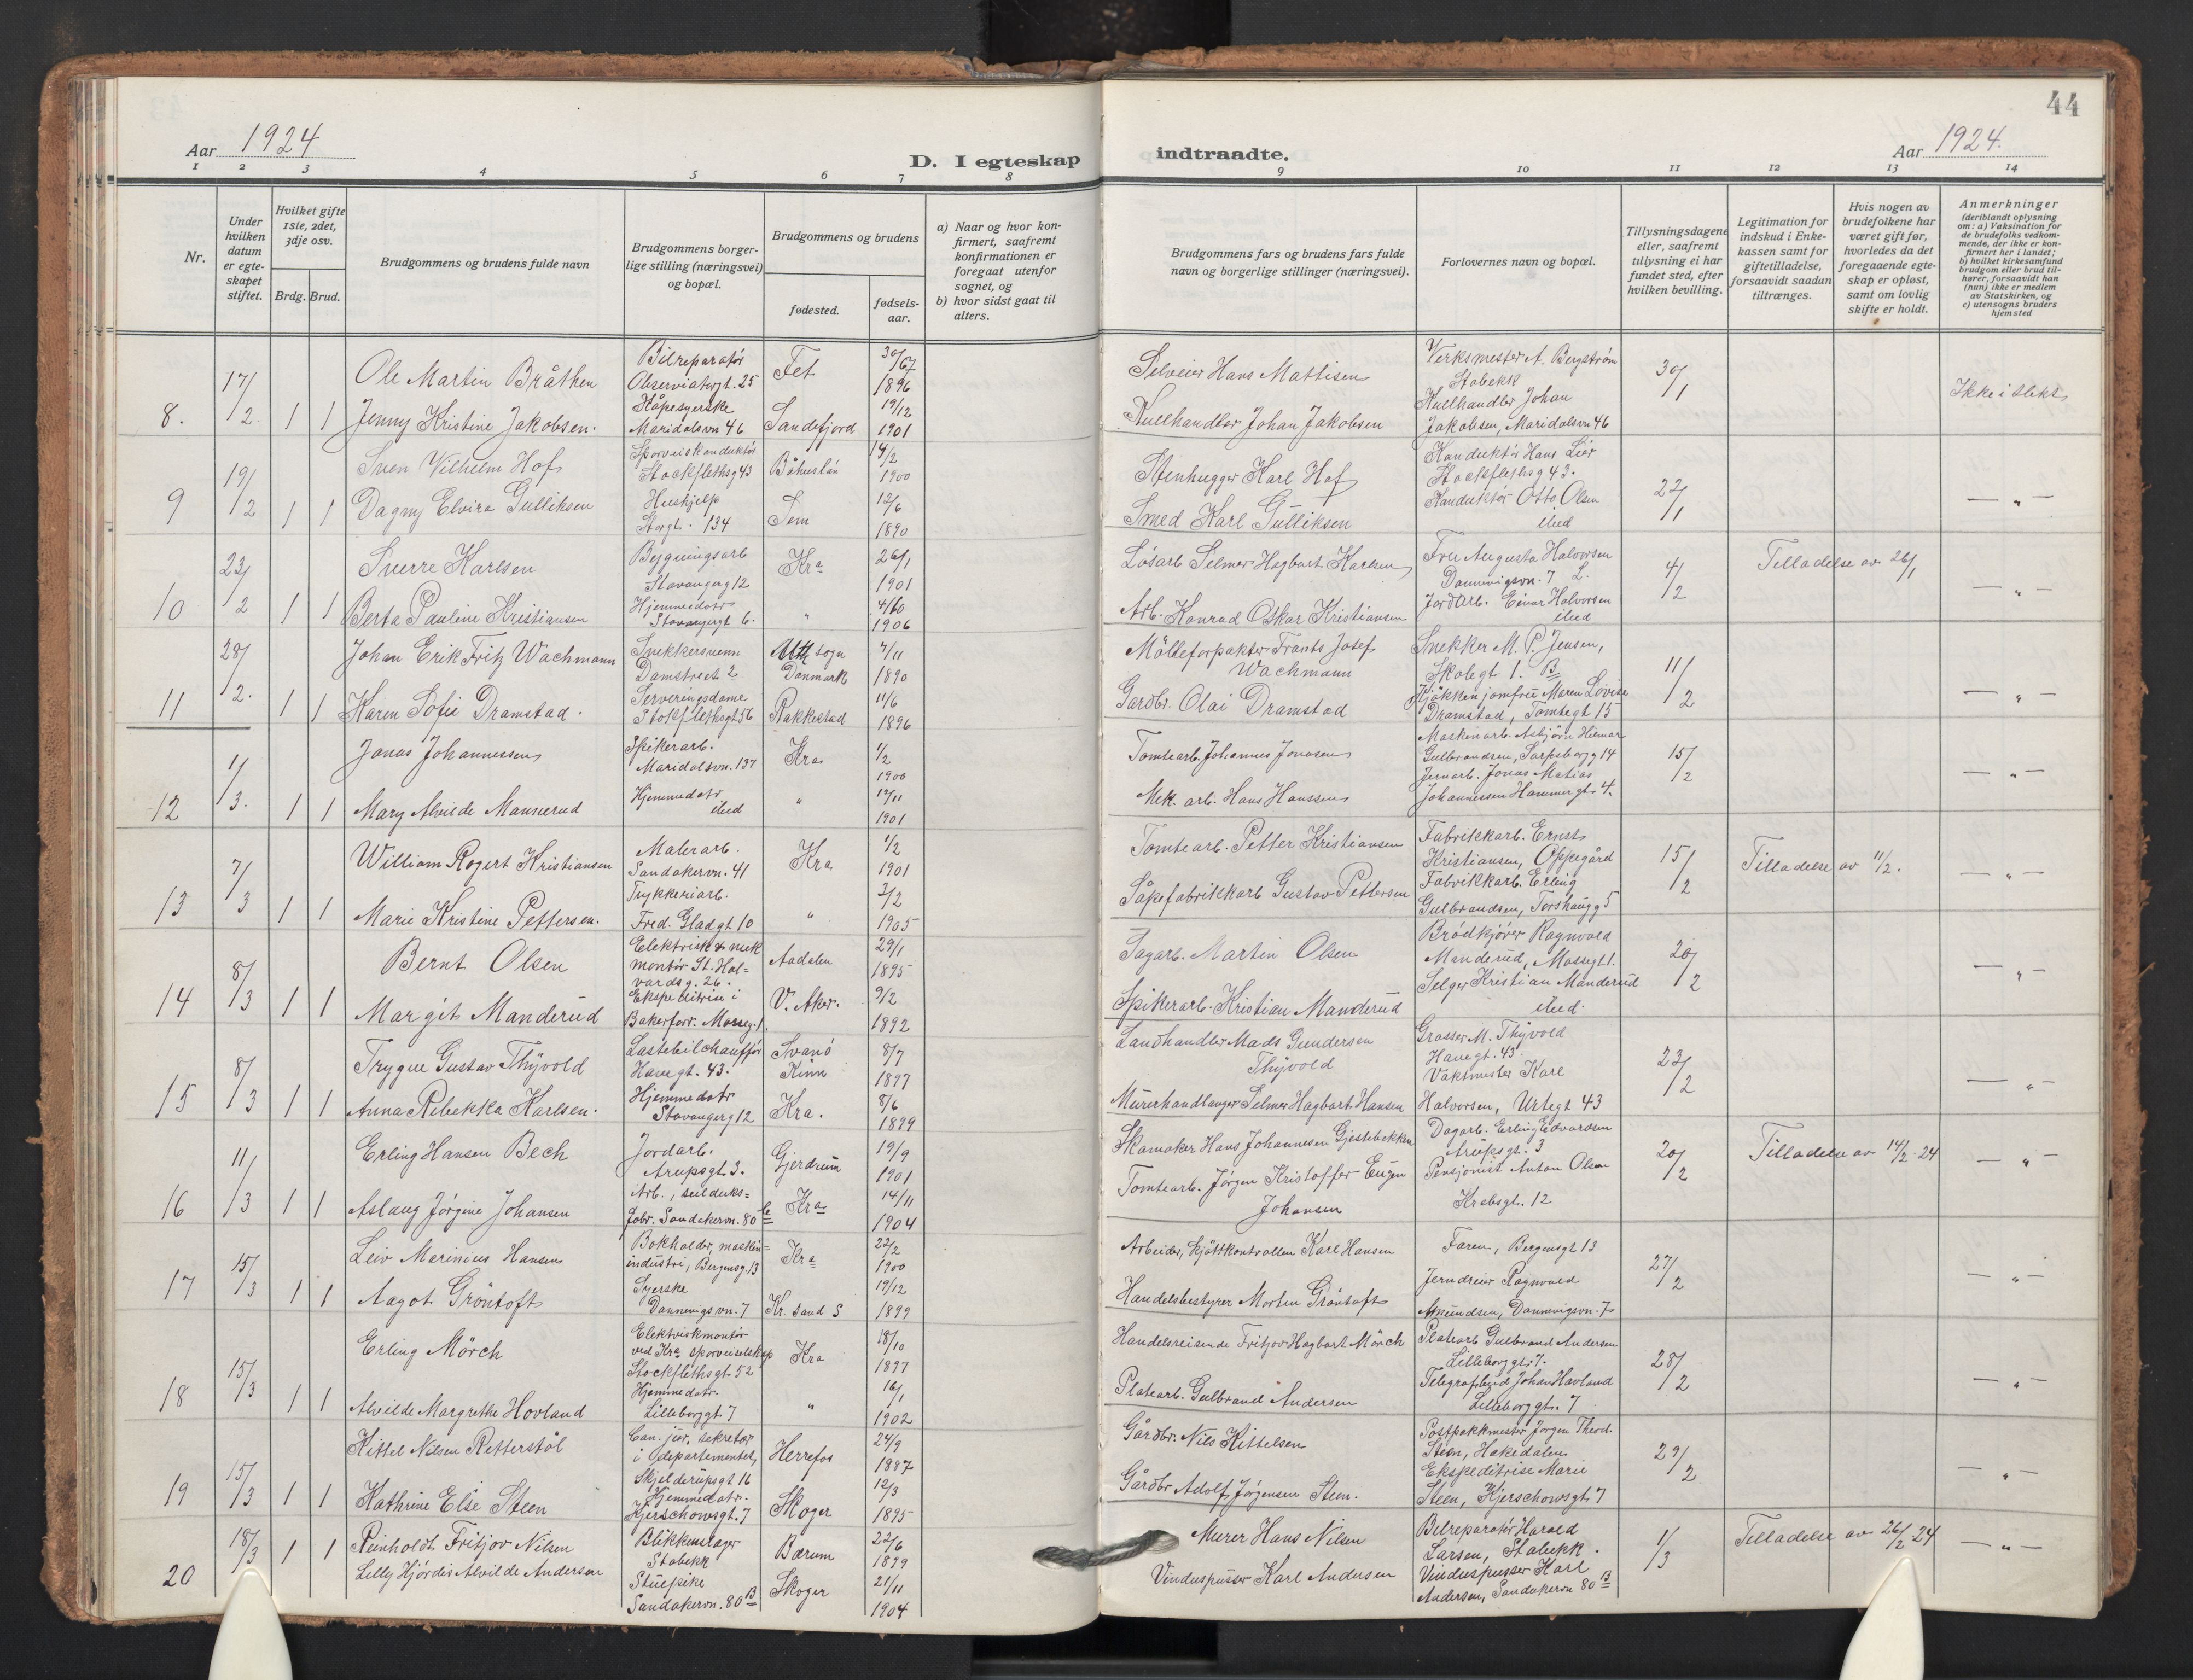 44
Aar 1924
D. I egteskap indtraadte.
Aar 1924.
1 2 3 4 5 6 7 8 9 10 11 12 13 14
Nr.
Under hvilken datum er egteskapet stiftet.
Hvilket gifte 1ste, 2det, 3dje osv.
Brdg. Brud.
Brudgommens og brudens fulde navn
Brudgommens borgerlige stilling (næringsvei) og bopæl.
Brudgommens og brudens
fødested.
fødselsaar.
a) Naar og hvor konfirmert, saafremt konfirmationen er foregaat utenfor sognet, og
b) hvor sidst gaat til alters.
Brudgommens fars og brudens fars fulde navn og borgerlige stillinger (næringsvei).
Forlovernes navn og bopæl.
Tillysningsdagene eller, saafremt tillysning ei har fundet sted, efter hvilken bevilling.
Legitimation for indskud i Enkekassen samt for giftetilladelse, forsaavidt saadan tiltrænges.
Hvis nogen av brudefolkene har været gift før, hvorledes da det foregaaende egteskap er opløst, samt om lovlig skifte er holdt.
Anmerkninger (deriblandt oplysning om: a) Vaksination for de brudefolks vedkommende, der ikke er konfirmert her i landet; b) hvilket kirkesamfund brudgom eller brud tilhører, forsaavidt han (hun) ikke er medlem av Statskirken, og c) utensogns bruders hjemsted
8. 17/2. 1 1
Ole Martin Bråthen
Bilreparatör
Observatorgt. 25
Fet
1896
Jenny Kristine Jakobsen.
Kåpesyerske
Maridalsvn 46
Sandefjord
19/12
1901
Hans Mattisen
Kullhandler Johan Jakobsen
Verksmester A. Bergström
Stabekk
Kullhandler Johan
Jakobsen, Maridalsvn 46
30/1
Ikke i slekt
9 19/2 1 1
Sven Vilhelm Hof
Sporveiskonduktör
Stockflethsg 43
Båhuslän
14/2
1900
Dagny Elvira Gulliksen
Hushjelp
Storgt. 134
Sem
12/6
1890
Stenhugger Karl Hof
Smed Karl Gulliksen
Konduktör Hans Lier
Stockflethsg 43.
Konduktör Otto Olsen
ibid
22/1
— „ —
10 23/2 1 1
Sverre Karlsen
Bygningsarb
Stavangerg 12
Kra
26/1
1901
Berta Pauline Kristiansen
Hjemmedatr
Stavangergt 6.
„
4/10
1906
Løsarb Selmer Hagbart Karlsen
Arb. Konrad Oskar Kristiansen
Fru Augusta Halvorsen
Dannevigsvn. 7
Jordarb. Einar Halvorsen
ibid
4/2
Tilladelse av 26/1
— „ —
11 28/2. 1 1
Johan Erik Fritz Wachmann
Snekkersvenn
Damstredt 2
sogn
Danmark
7/11
1890
Karen Sofie Dramstad.
Serveringsdame
Stokflethsgt 56
Rakkestad
11/6
1896
Mölleforpakter Frants Josef
Wachmann
Gardbr. Olai Dramstad
Snekker M. P. Jensen,
Skolegt 1. B
Kjøkkenjomfru Maren Lovise
Dramstad, Tomtegt 15
11/2
— „ —
12 1/3. 1 1
Jonas Johannessen
Spikerarb.
Maridalsvn. 137
Kra
1/2
1900
Mary Alvilde Mannerud
Hjemmedatr
ibid
„
12/11
1901
Tomtearb. Johannes Jonasen
Mek. arb. Hans Hanssen
Maskinarb. Asbjörn Hilmar
Gulbrandsen, Sarpsborgg 14
Jernarb. Jonas Matias
Johannessen Hammergt 4.
15/2
— „ —
13 7/3 1 1
William Rogert Kristiansen
Malerarb.
Sandakervn. 41
Kra
1/2
1901
Marie Kristine Pettersen.
Trykkeriarb.
Fred. Gladgt 10
„
3/2
1905
Tomtearb. Petter Kristiansen
Såpefabrikkarb Gustav Pettersen
Fabrikkarb. Ernst
Kristiansen, Oppegård
Fabrikkarb. Erling
Gulbrandsen, Torshaugg 5
15/2
Tilladelse av 11/2.
— „ —
14 8/3 1 1
Bernt Olsen
Elektrisk & mek
montör St. Hal=
vardsg. 26.
Aadalen
29/1
1895
Margit Manderud
Ekspeditrise i
Bakerforr. Mosseg. 1.
V. Aker.
9/2
1892
Sagarb. Martin Olsen
Spikerarb. Kristian Manderud
Brödkjörer Ragnvald
Manderud, Mossegt 1.
Selger Kristian Manderud
ibid.
20/2
— „ —
15 8/3 1 1
Trygve Gustav Thyvold
Lastebilchauffør
Havegt. 43.
Svanö
Kinn
8/7
1897
Anna Rebekka Karlsen.
Hjemmedatr
Stavangerg 12
Kra.
8/6
1899
Landhandler Mads Gundersen
Thyvold
Murerhandlanger Selmer Hagbart Hansen
Grosser M. Thyvold
Havegt. 43.
Vaktmester Karl
Halvorsen, Urtegt 43
23/2
— „ —
16 11/3 1 1
Erling Hansen Bech
Jordarb.
Arupsgt 3.
Gjerdrum
19/9
1901
Aslaug Jörgine Johansen
Arb., seilduks=
fabr. Sandakervn. 80
Kra
14/11
1904
Skomaker Hans Johannesen Gjestebekken
Tomtearb. Jörgen Kristoffer Eugen
Johansen
Dagarb. Erling Edvardsen
Arupsgt. 3
Pensjonist Anton Olsen
Krebsgt. 12
20/2
Tilladelse av 14/2-24
— „ —
17 15/3 1 1
Leiv Marinius Hansen
Bokholder, maskin=
industri, Bergensg. 13
Kra
22/2
1900
Aagot Gröntoft
Syerske
Dannevigsvn. 7
Kr. sand S
19/12
1899
Arbeider, kjöttkontrollen Karl Hansen
Handelsbestyrer Morten Gröntoft
Faren, Bergensgt 13
Jerndreier Ragnvald
Amundsen, Dannevigsvn. 7
27/2
— „ —
18 15/3 1 1
Erling Mörch
Elektriskmontör
ved Kra sporveiselskap
Stockflethsgt 52
Kra
18/10
1897
Alvilde Margrethe Hovland
Hjemmedatr.
Lilleborggt 7
„
16/1
1902
Handelsreisende Fritjov Hagbart Mörch
Platearb. Gulbrand Andersen
Platearb Gulbrand Andersen
Lilleborggt. 7.
Telegrafbud Johan Havland
Lilleborggt. 7
28/2
— „ —
19 15/3 1 1
Kittel Nilsen Retterstöl
Can. jur., sekretær
i departementet,
Skjelderupsgt 16
Herrefos
24/9
1887
Kathrine Elise Steen
Hjemmedatr.
Kjerschowsgt. 7
Skoger
12/3
1895
Gårdbr. Nils Kittelsen
Gårdbr Adolf Jørgensen Steen.
Postpakkmester Jørgen Theod.
Steen, Hakedalen
Ekspeditrise Marie
Steen, Kjerschowsgt 7
29/2
— „ —
20 18/3 1 1
Reinholdt Fritjov Nilsen
Blikkenslager
Stabekk
Bærum
22/6
1899
Lilly Hjördis Alvilde Andersen
Stuepike
Sandakervn. 80 B
Skoger
21/11
1904
Murer Hans Nilsen
Vinduspusser Karl Andersen
Bilreparatör Harald
Larsen, Stabekk.
Vinduspusser Karl
Andersen, Sandakervn 80 B
1/3
Tilladelse av 26/2 24
— „ —